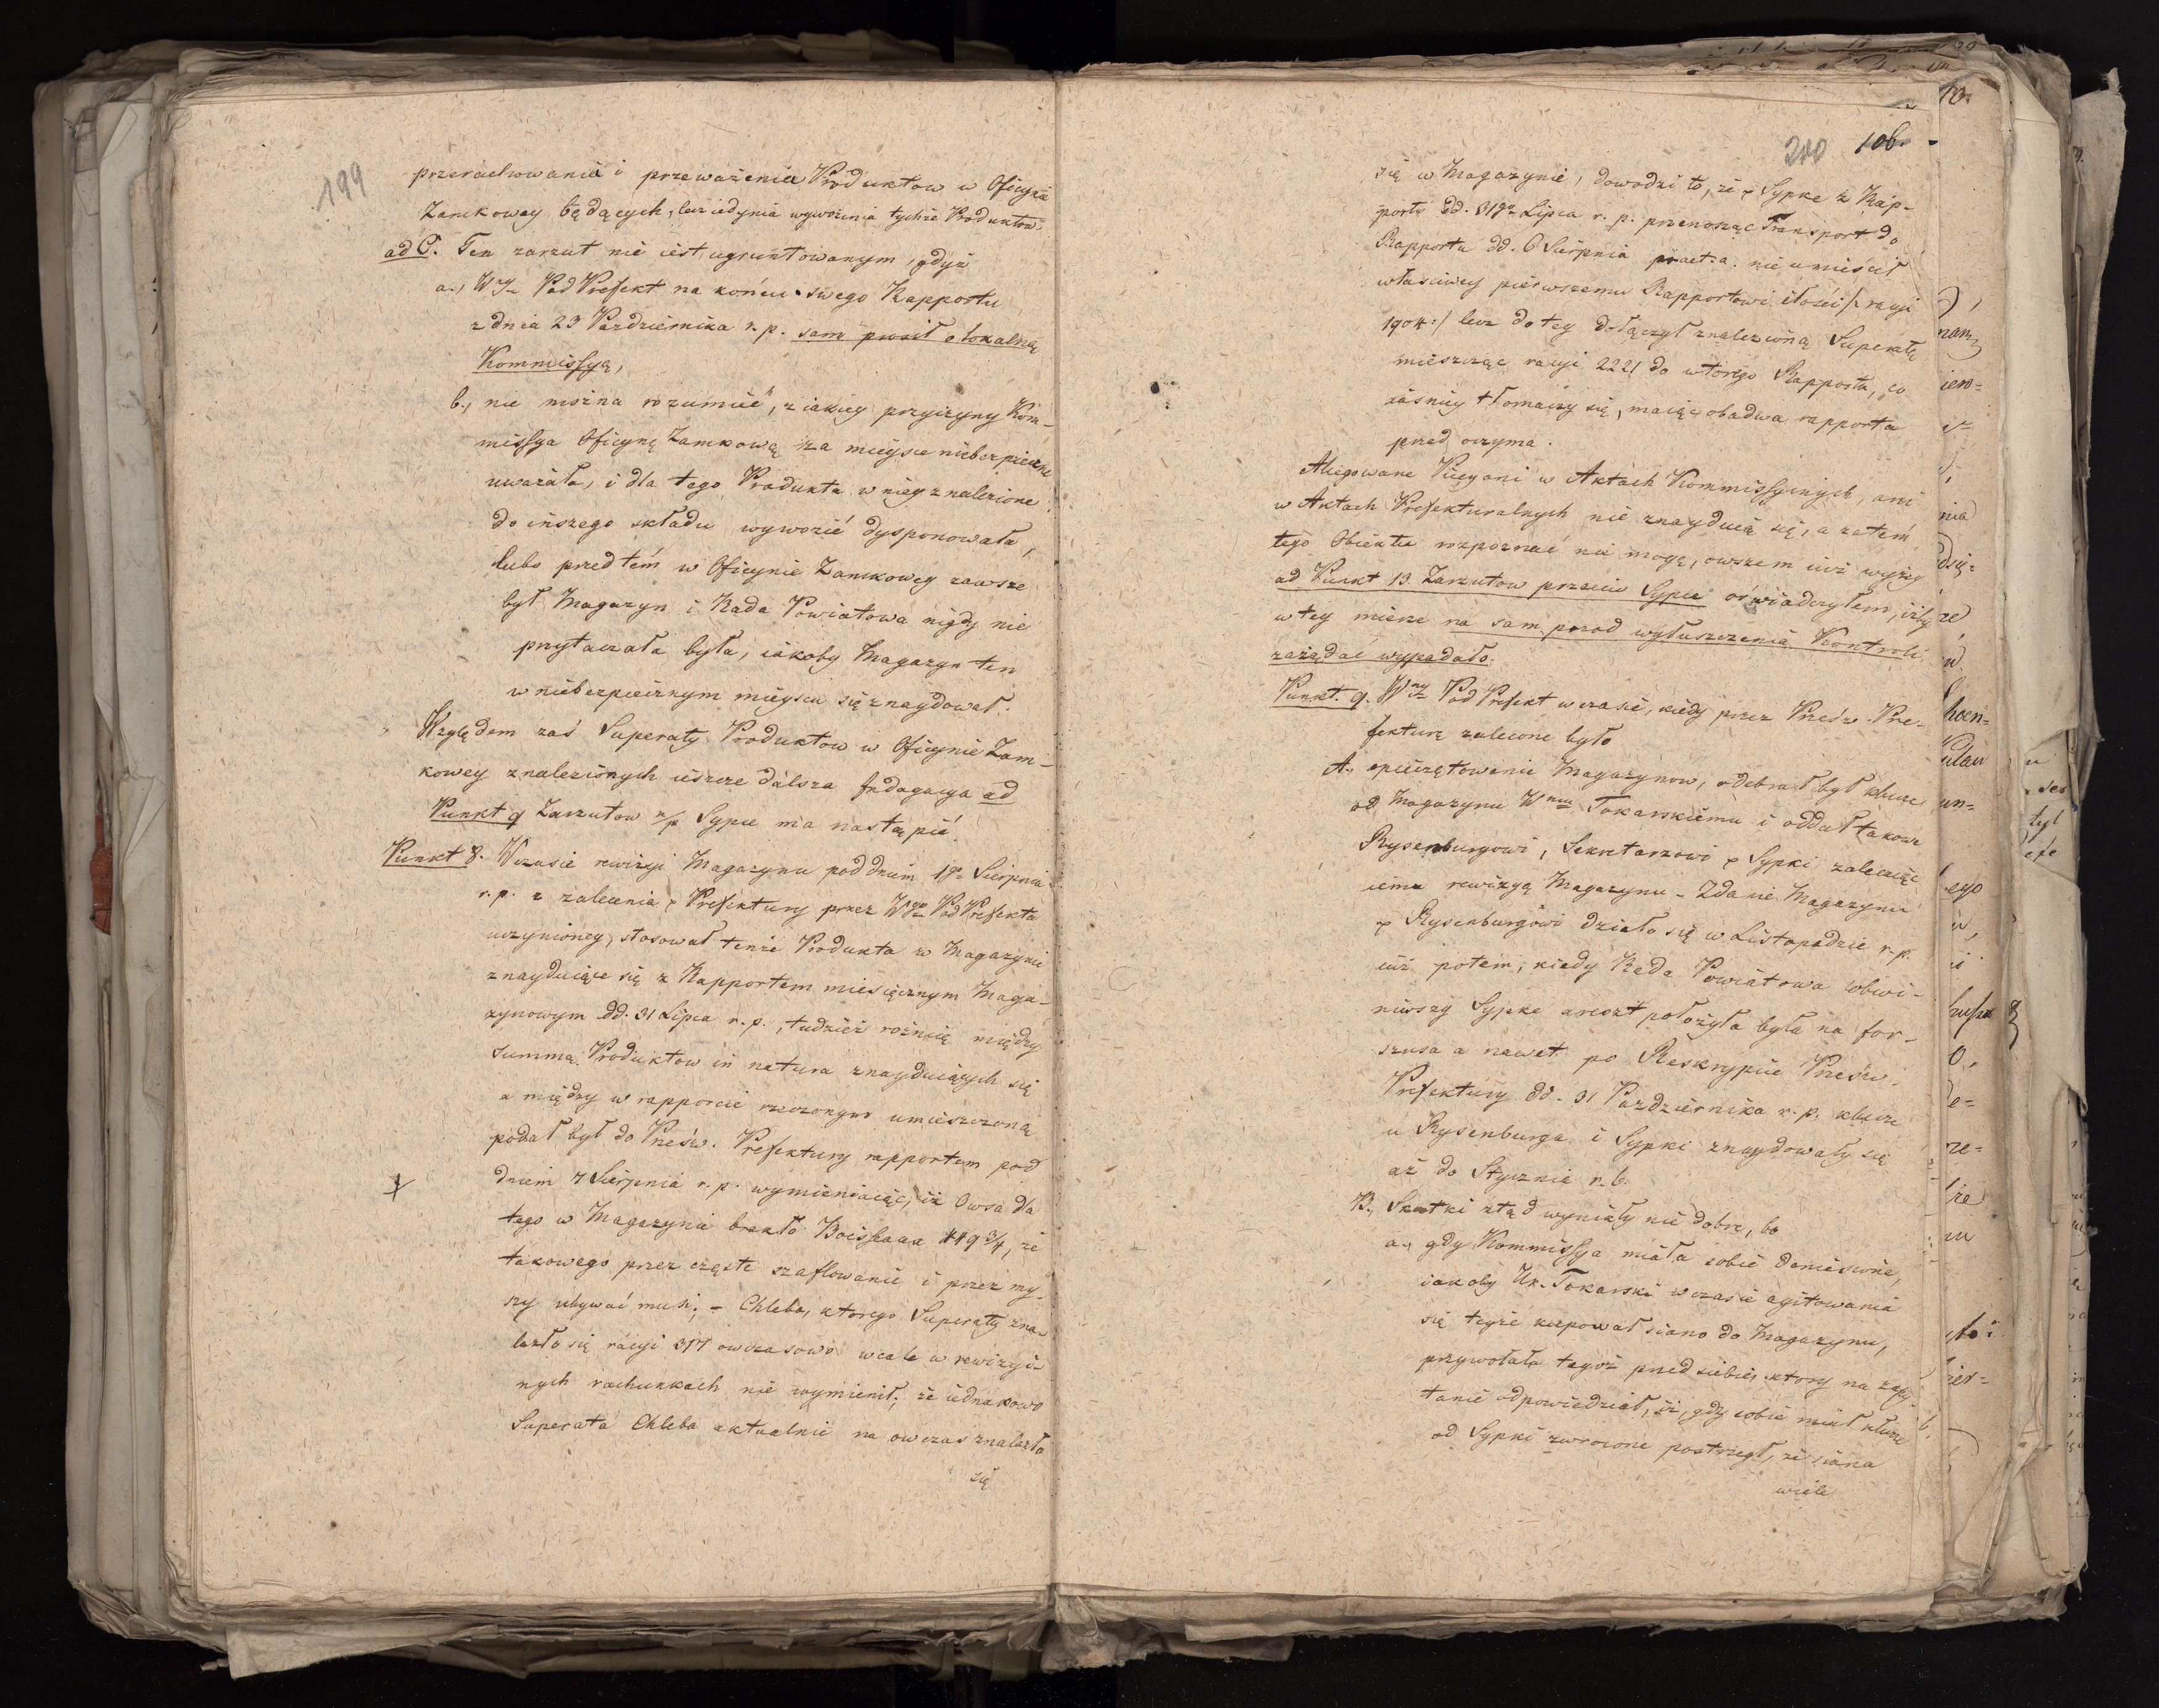 199
przerachowania i przeważenia Produktow w Oficynie
Zamkowey będących, lecz iedynie wywożenia tychże Produktow.
ad C. Ten zarzut nie iest ugruntowanym, gdyż
a., WJ. PodPrefekt na końcu swego Rapportu
z dnia 23 Pazdziernika r. p. sam prosił o lokalną
Kommissyą,
b., nie można rozumieć, z iakiey przyczyny Kom-
missya Oficynę Zamkową za mieysce niebezpieczne
uważała, i dla tego Produkta w niey znalezione
do inszego składu wywozić dysponowała,
lubo przedtém w Oficynie Zamkowey zawsze
był Magazyn i Rada Powiatowa nigdy nie
przytaczała była, iakoby Magazyn ten
w niebezpiecznym mieyscu się znaydował.
Względem zaś Superaty Produktow w Oficynie Zam-
kowey znalezionych ieszcze dalsza Indagacya ad
Punkt 9 Zarzutow Sypce ma nastąpić.
Punkt 8. W czasie rewizyi Magazynu pod dniem 1go Sierpnia
r. p. z zalecenia Prefektury przez Wgo PodPrefekta
uczynioney, stosował tenże Produkta w Magazynie
znayduiące się z Rapportem miesięcznym Maga-
zynowym dd. 31 Lipca r. p., tudzież rożnicę między
summą Produktow in natura znayduiących się
a między w rapporcie rzeczonym umieszczoną
podał był do Prześw. Prefektury rapportem pod
dniem 7 Sierpnia r. p. wymieniaiąc, iż Owsa dla
tego w Magazynie brakło 49 3/4, że
takowego przez częste szaflowanie i przez my-
szy ubywać musi; - Chleba, ktorego Superaty zna-
lazło się racyi 317 owczasowo wcale w rewizyi-
nych rachunkach nie wymienił; że iednakowo
Superata Chleba aktualnie na owczas znalazła
się
200 106.
się w Magazynie, dowodzi to, że Sypke z Rap-
portu dd. 31go Lipca r. p. przenosząc Transport do
Rapportu dd. 6 Sierpnia praet. a. nie umieścił
właściwey pierwszemu Rapportowi ilości /: racyi
1904 :/ lecz do tey dołączył znalezioną Superatę
mieszcząc racyi 2221 do wtorego Rapportu, co
iaśniey tłomaczy się, maiąc obadwa rapporta
przed oczyma.
Allegowane Piegoni w Aktach Kommissyinych, ani
w Aktach Prefekturalnych nie znayduią się, a zatem
tego Obiektu rozpoznać nie mogę, owszem iuż wyżey
ad Punkt 13. Zarzutow przeciw Sypce oświadczyłem, iżby
w tey mierze na sam przod wytłuszczenia Kontroli
zażądać wypadało.
Punkt. 9. Wny PodPrefekt w czasie, kiedy przez Prześw. Pre-
fekturę zalecone było
A., opieczętowanie Magazynow, odebrał był klucze
od Magazynu Wmu Tokarskiemu i oddał takowe
Rysenburgowi, Sekretarzowi Sypki zalecaiąc
iemu rewizyą Magazynu - Zdanie Magazynu
Rysenburgowi działo się w Listopadzie r. p.
iuż potem, kiedy Rada Powiatowa obwi-
niwszy Sypke areszt położyła była na for-
szusa a nawet po Reskrypcie Prześw.
Prefektury dd. 31 Pazdziernika r. p. klucze
u Rysenburga i Sypki znaydowały się
aż do Stycznia r. b.
B., Skutki ztąd wynikły nie dobre, bo
a., gdy Kommissya miała sobie doniesione,
iakoby Ur. Tokarski w czasie agitowania
się teyże kupował siano do Magazynu,
przywołała tegoż przed siebie, ktory na zapy-
tanie odpowiedział, iż, gdy sobie miał klucze
od Sypki zwrocone postrzegł, że siana
wiele